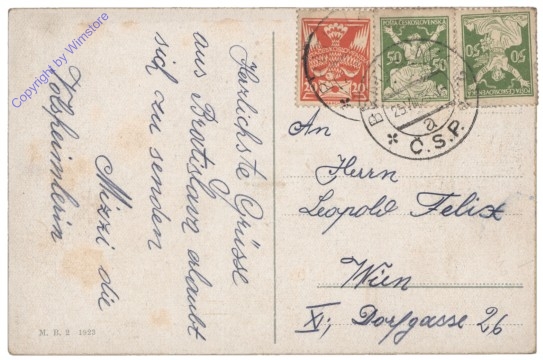 Herzlichste Grüsse
aus Bratislava erlaubt
sich zu senden
Mizzi die
An
Herrn
Leopold Felix
Wien
XI; Dorfgasse 26
M. B. 2 1923
20 20
POŠTA ČESKOSLOVENSKÁ
50 50
POŠTA ČESKOSLOVENSKÁ
50 50
Č.S.P.
Copyright by Wimstore